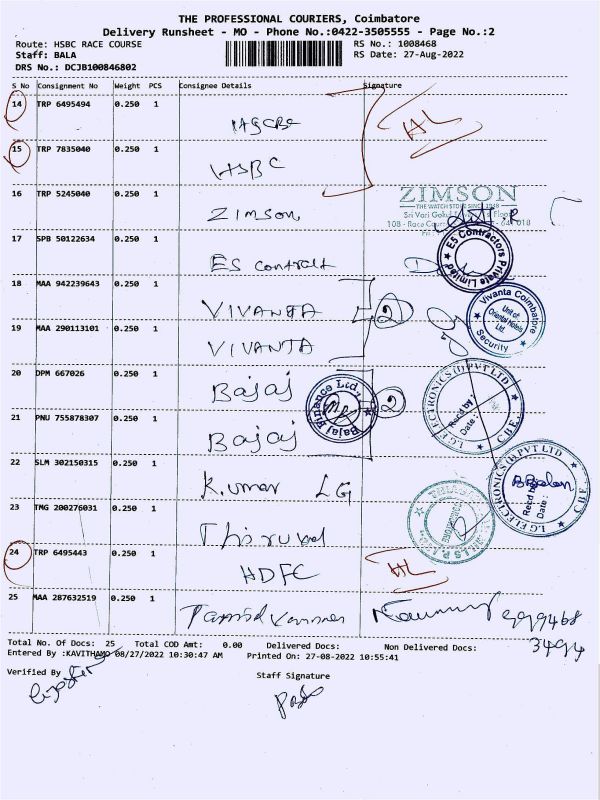 THE PROFESSIONAL COURIERS, Coimbatore
Delivery Runsheet - MO - Phone No.:0422-3505555 - Page No.:2
Route: HSBC RACE COURSE RS No.: 1008468
Staff: BALA RS Date: 27-Aug-2022
DRS No.: DCJB100846802
S No Consignment No Weight PCS Consignee Details Signature
14 TRP 6495494 0.250 1
HSBC HL
15 TRP 7835040 0.250 1
HSBC
16 TRP 5245040 0.250 1
ZIMSON
THE WATCH STORE SINCE 1948
Zimson
17 SPB 50122634 0.250 1
E5 Contractors Private Limited
ES contract
18 MAA 942239643 0.250 1
VIVANTA 2
Vivanta Coimbatore
Unit of Oriental Hotels Ltd.
Security
19 MAA 290113101 0.250 1
VIVANTA
20 DPM 667026 0.250 1
Bajaj 2
Bajaj Finance Ltd.,
L.G. ELECTRONICS (I) PVT LTD
Recd by :
Date :
CBE.
21 PNU 755878307 0.250 1
Bajaj
22 SLM 302150315 0.250 1
Kumar LG
L.G. ELECTRONICS (I) PVT LTD
Recd by :
Date :
CBE
23 TMG 200276031 0.250 1
24 TRP 6495443 0.250 1
HDFC HL
25 MAA 287632519 0.250 1
Total No. Of Docs: 25 Total COD Amt: 0.00 Delivered Docs: Non Delivered Docs:
Entered By :KAVITHAMO 08/27/2022 10:30:47 AM Printed On: 27-08-2022 10:55:41
Verified By Staff Signature